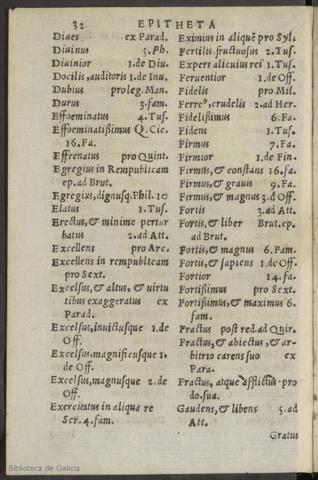 32 EPITHETA
Diues ex Parad.
Diuinus 5. Ph.
Diuinior 1. de Diu.
Docilis, auditoris 1. de Inu.
Dubius pro leg. Man.
Durus 3. fam.
Effoeminatus 4. Tus.
Effoeminatißimus Q. Cic.
16. Fa.
Effrenatus pro Quint.
Egregius in Rempublicam
ep. ad Brut.
Egregius, dignusq́. Phil. 10
Elatus 1. Tus.
Erectus, & minime pertur
batus 2. ad Att.
Excellens pro Arc.
Excellens in rempublicam
pro Sext.
Excelsus, & altus, & uirtu
tibus exaggeratus ex
Parad.
Excelsus, inuictusque 1. de
Off.
Excelsus, magnificusque 1.
de Off.
Excelsus, magnusque 2. de
Off.
Exercitatus in aliqua re
Scr. 4. fam.
Eximius in aliquẽ pro Syl.
Fertilis fructuosus 2. Tus.
Expers alicuius rei 1. Tus.
Feruentior 1. de Off.
Fidelis pro Mil.
Ferreꝰ, crudelis 2. ad Her.
Fidelißimus 6. Fa.
Fidens 1. Tus.
Firmus 7. Fa.
Firmior 1. de Fin.
Firmus, & constans 16. fa.
Firmus, & grauis 9. Fa.
Firmus, & magnus 3. d Off.
Fortis 3. ad Att.
Fortis, & liber Brut. ep.
ad Brut.
Fortis, & magnus 6. Fam.
Fortis, & sapiens 1. de Off.
Fortior 14. fa.
Fortißimus pro Sext.
Fortißimus, & maximus 6.
fam.
Fractus post red. ad Quir.
Fractus, & abiectus, & ar-
bitrio carens suo ex
Para.
Fractus, atque afflictus pro
do. sua.
Gaudens, & libens 5. ad
Att.
Gratus
Biblioteca de Galicia